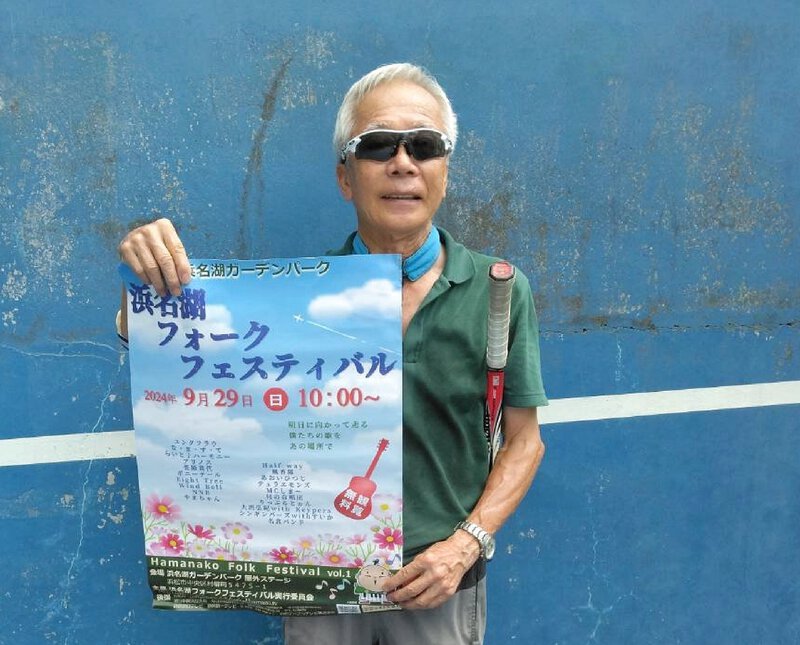 浜名湖ガーデンパーク
浜名湖
フォーク
フェスティバル
2024年 9月29日 日 10:00～
明日に向かって走る
僕たちの歌を
あの場所で
な・ま・す・て
らいとⅠハーモニー
アリノス
ポニーテール
Eight Tree
Wind Bell
NNB
やまちゃん
Half way
風香陽
あおいひつじ
テュラエモンズ
MCしまー
大沢弘紀with Keypers
シンギンバーズwithすいか
名倉バンド
観覧
無料
Hamanako Folk Festival vol.1
会場 浜名湖ガーデンパーク 屋外ステージ
浜松市中央区村櫛町5475-1
主催 浜名湖フォークフェスティバル実行委員会
後援